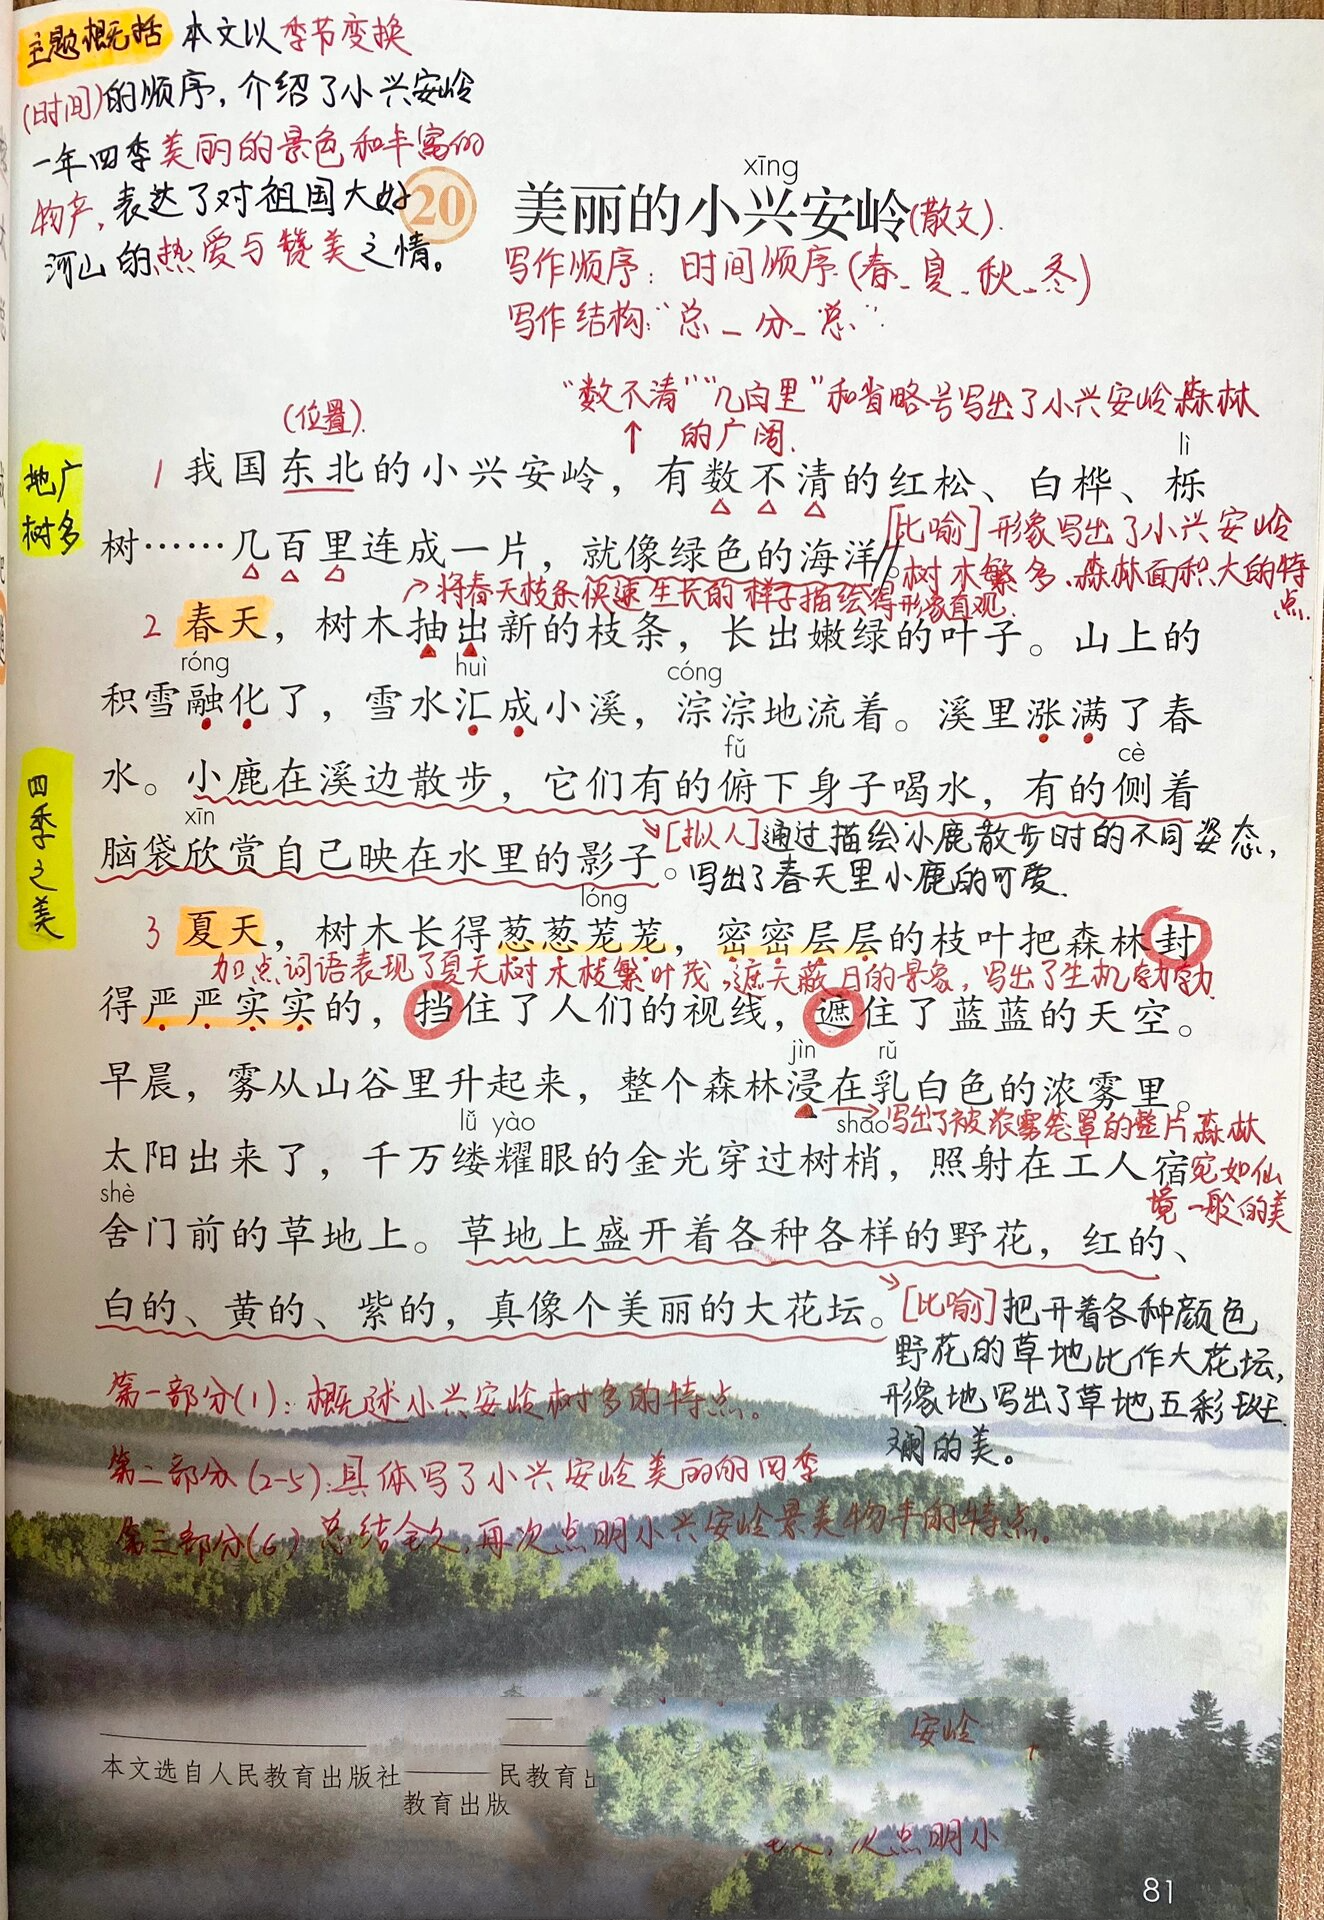 主题概括 本文以季节变换
(时间)的顺序,介绍了小兴安岭
一年四季美丽的景色和丰富的
物产,表达了对祖国大好
河山的热爱与赞美之情。
20
xīng
美丽的小兴安岭(散文).
写作顺序:时间顺序(春_夏_秋_冬)
写作结构:"总_分_总".
"数不清""几百里"和省略号写出了小兴安岭森林
的广阔.
(位置).
地广
树多
lì
1 我国东北的小兴安岭,有数不清的红松、白桦、栎
[比喻]形象写出了小兴安岭
树……几百里连成一片,就像绿色的海洋。
树木繁多、森林面积大的特
点.
将春天枝条快速生长的样子描绘得形象直观.
2 春天,树木抽出新的枝条,长出嫩绿的叶子。山上的
róng huì cóng
积雪融化了,雪水汇成小溪,淙淙地流着。溪里涨满了春
fǔ cè
四季之美
水。小鹿在溪边散步,它们有的俯下身子喝水,有的侧着
xīn
脑袋欣赏自己映在水里的影子。
[拟人]通过描绘小鹿散步时的不同姿态,
写出了春天里小鹿的可爱.
lóng
3 夏天,树木长得葱葱茏茏,密密层层的枝叶把森林封
加点词语表现了夏天树木枝繁叶茂,遮天蔽日的景象,写出了生机勃勃.
得严严实实的,挡住了人们的视线,遮住了蓝蓝的天空。
jìn rǔ
早晨,雾从山谷里升起来,整个森林浸在乳白色的浓雾里。
写出了被浓雾笼罩的整片森林
宛如仙
境一般的美
lǚ yào shāo
太阳出来了,千万缕耀眼的金光穿过树梢,照射在工人宿
shè
舍门前的草地上。草地上盛开着各种各样的野花,红的、
白的、黄的、紫的,真像个美丽的大花坛。
[比喻]把开着各种颜色
野花的草地比作大花坛,
形象地写出了草地五彩斑
斓的美。
第一部分(1):概述小兴安岭树多的特点。
第二部分(2-5):具体写了小兴安岭美丽的四季
第三部分(6)总结全文,再次点明小兴安岭景美物丰的特点。
安岭
本文选自人民教育出版社
民教育出
教育出版
点明小
81